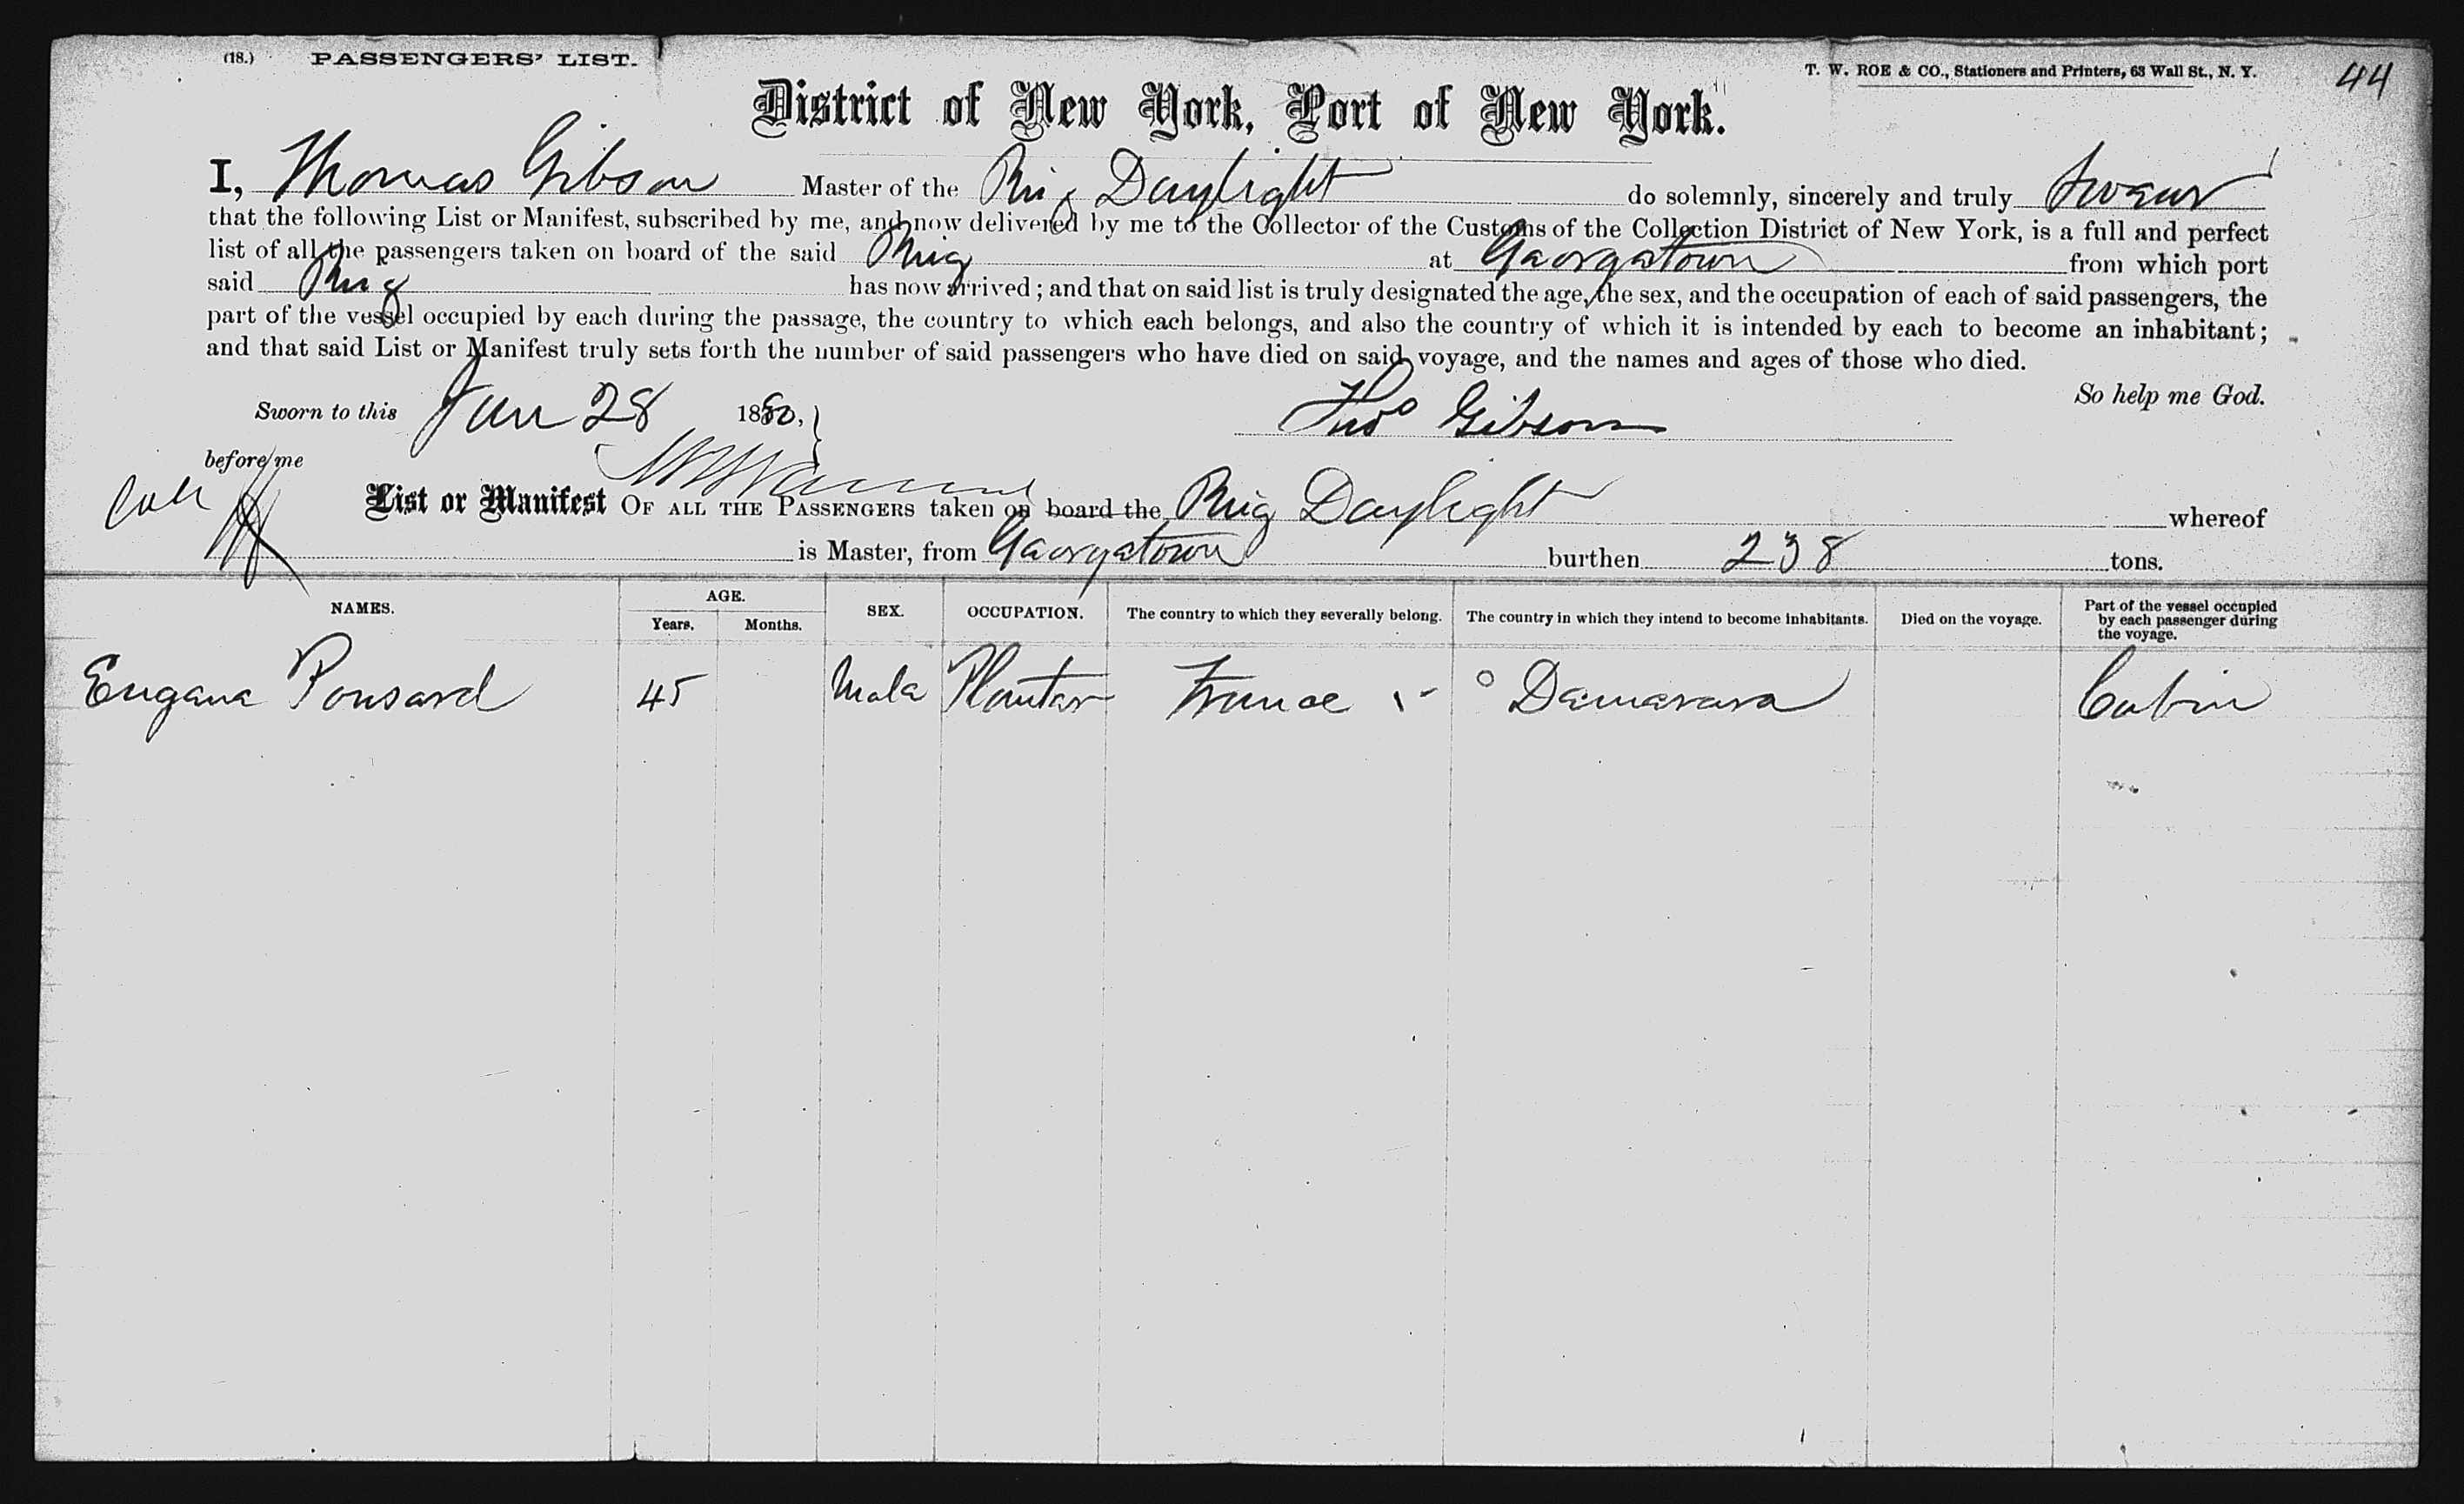 (18.) PASSENGERS' LIST. T. W. ROE & CO., Stationers and Printers, 63 Wall St., N. Y. 44
District of New York, Port of New York.
I, Thomas Gibson Master of the Brig Daylight do solemnly, sincerely and truly Swear
that the following List or Manifest, subscribed by me, and now delivered by me to the Collector of the Customs of the Collection District of New York, is a full and perfect
list of all the passengers taken on board of the said Brig at Georgetown from which port
said Brig has now arrived; and that on said list is truly designated the age, the sex, and the occupation of each of said passengers, the
part of the vessel occupied by each during the passage, the country to which each belongs, and also the country of which it is intended by each to become an inhabitant;
and that said List or Manifest truly sets forth the number of said passengers who have died on said voyage, and the names and ages of those who died.
So help me God.
Sworn to this Jan 28 1880, Thos Gibson
before me
List or Manifest OF ALL THE PASSENGERS taken on board the Brig Daylight whereof
is Master, from Georgetown burthen 238 tons.
NAMES. AGE. SEX. OCCUPATION. The country to which they severally belong. The country in which they intend to become inhabitants. Died on the voyage. Part of the vessel occupied by each passenger during the voyage.
Years. Months.
Eugene Ponsard 45 Male Planter France Demerara Cabin